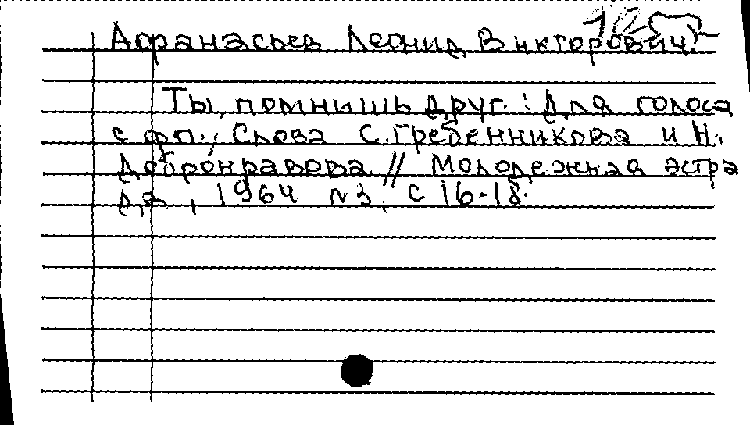 Афанасьев Леонид Викторович
Ты, помнишь друг. : Для голоса
с фп., Слова С. Гребенникова и Н.
Добронравова. // Молодежная эстра
да, 1964 №3, с 16-18.